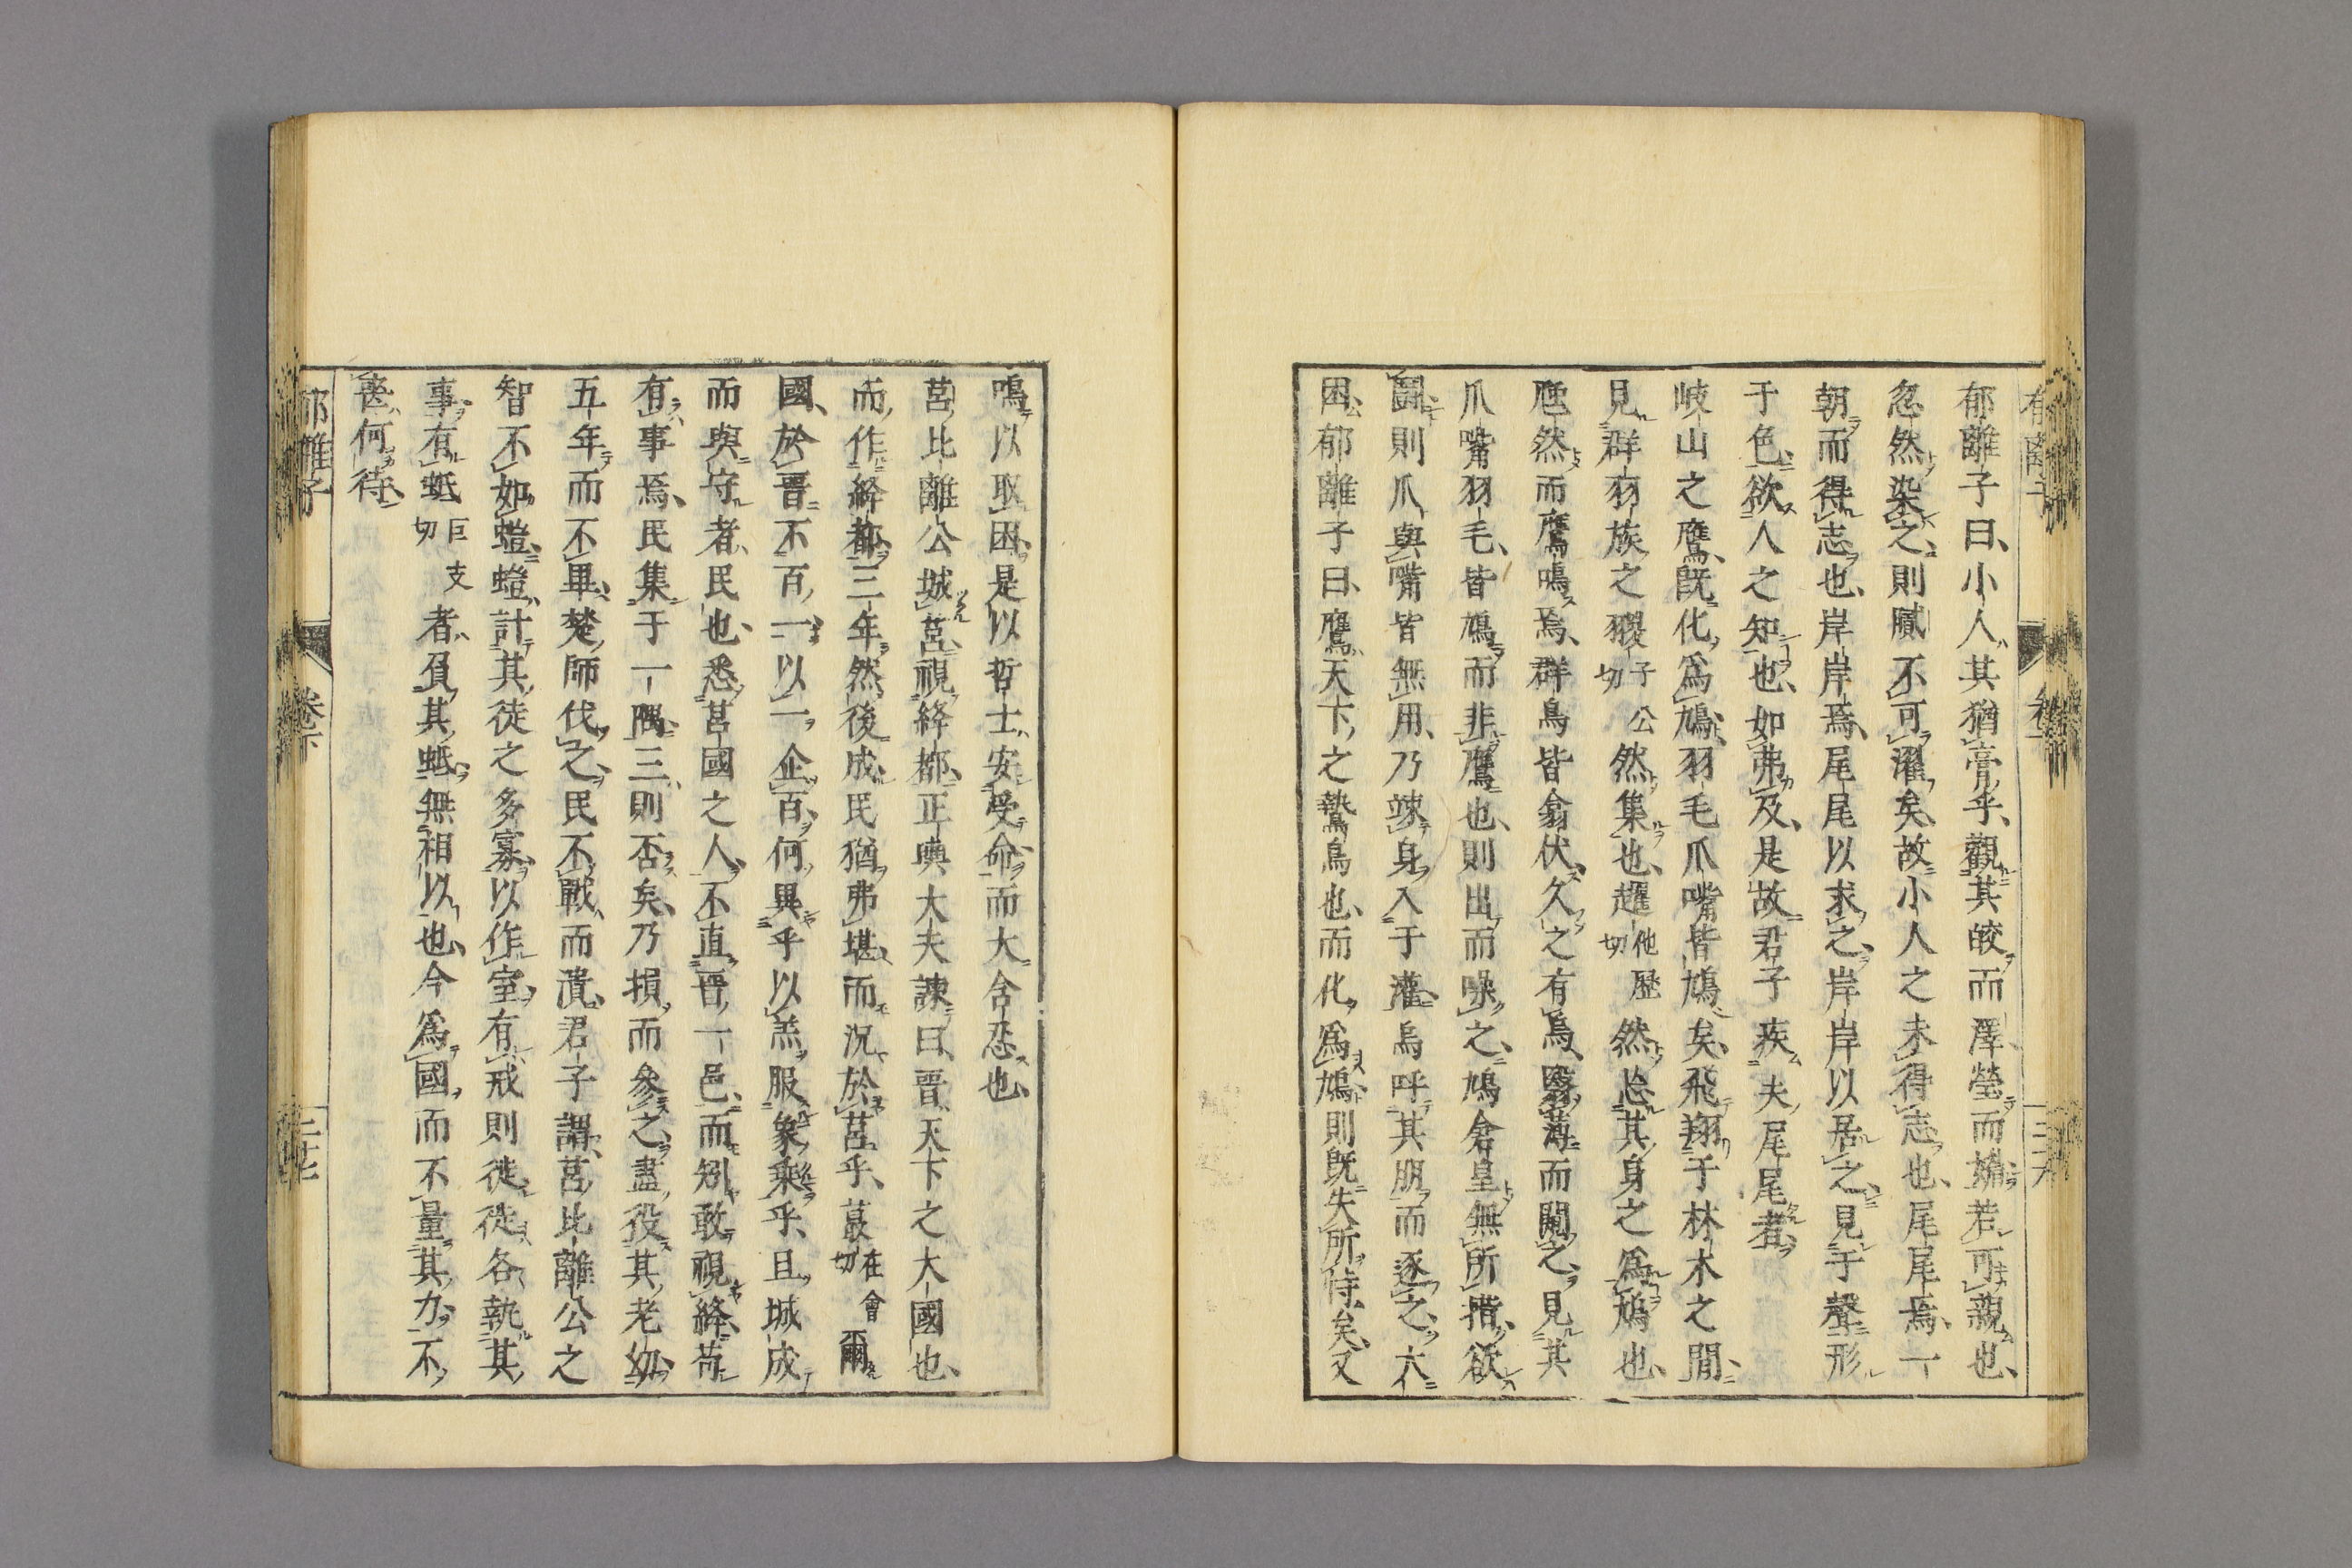 郁離子曰小人其猶膏乎觀其皎而澤瑩而媚若可親也
忽然染之則膩不可濯矣故小人之未得志也尾尾焉一
朝而得志也岸岸焉尾尾以求之岸岸以居之見于聲形
于色欲人之知也如弗及是故君子疾夫尾尾者
岐山之鷹既化爲鳩羽毛爪嘴皆鳩矣飛翔于林木之間
見群羽族之猣子公切然集也趯他歷切然忘其身之爲鳩也
虺然而鷹鳴焉群鳥皆翕伏久之有烏翳薄而闞之見其
爪嘴羽毛皆鳩而非鷹也則出而噪之鳩倉皇無所措欲
鬬則爪與嘴皆無用乃竦身入于灌烏呼其朋而逐之大
困郁離子曰鷹天下之鷙鳥也而化爲鳩則既失所恃矣又
鳴以取困是以哲士安受命而大含忍也
莒比離公城莒視絳都正輿大夫諫曰晋天下之大國也
而作絳都三年然後成民猶弗堪而況於莒乎蕞在會切爾
國於晋不百一以一企百何異乎以羔服象乘乎且城成
而與守者民也悉莒國之人不直晋一邑而矧敢視絳苟
有事焉民集于一隅三則否矣乃損而參之盡役其老幼
五年而不畢楚師伐之民不戰而潰君子謂莒比離公之
智不如螘螘計其徒之多寡以作室有戒則徙徙各執其
事有蚳巨支切者負其蚳無相以也今爲國而不量其力不
喪何待
郁離子
卷下
二十七